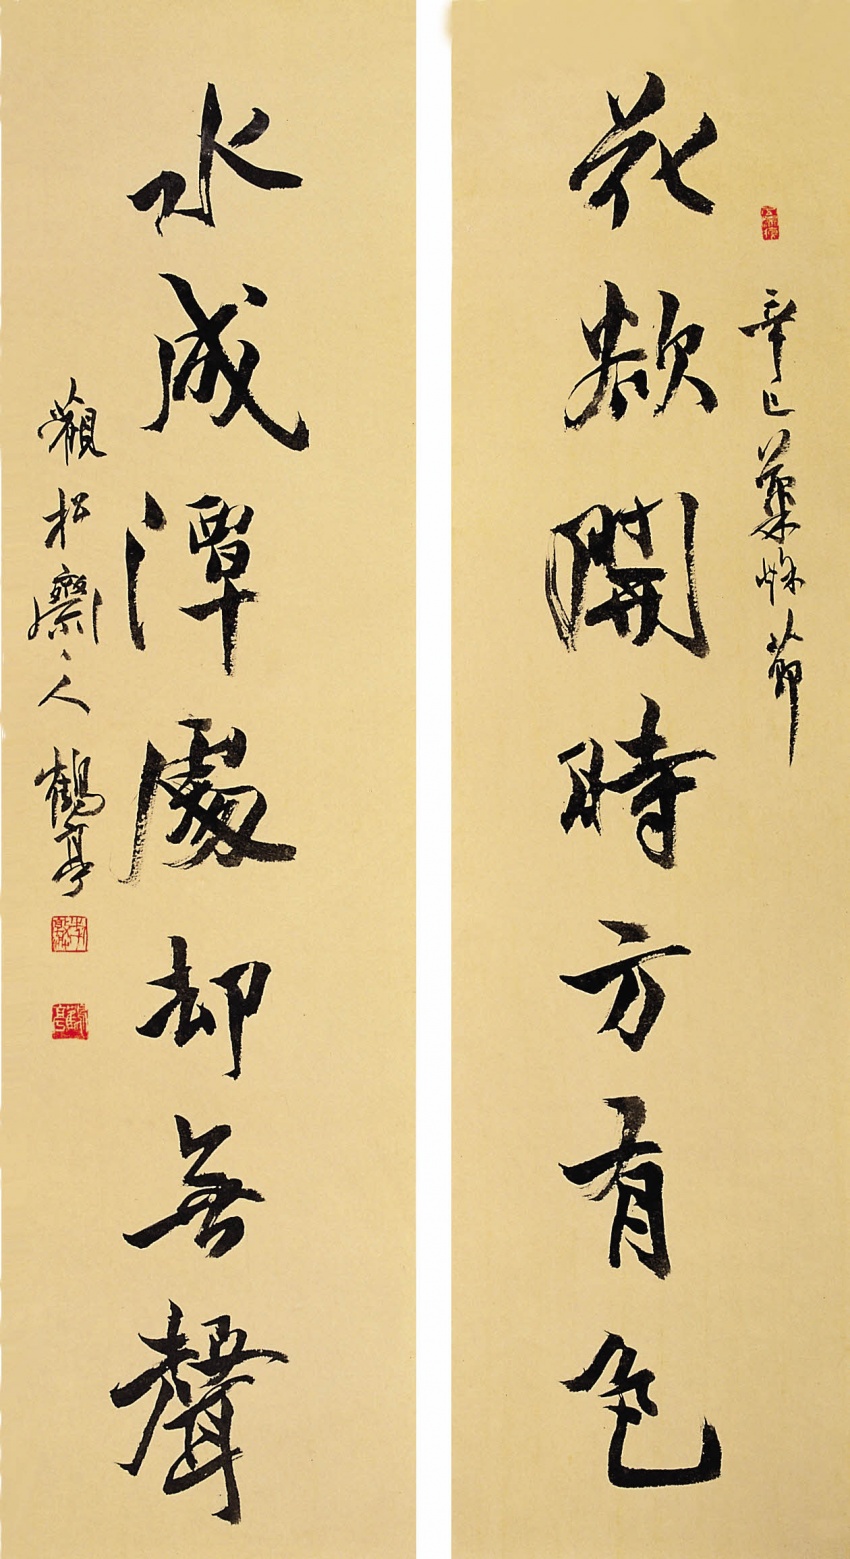 花欲開時方有色
辛巳 節
水成潭處却無聲
觀松齋人鶴亭